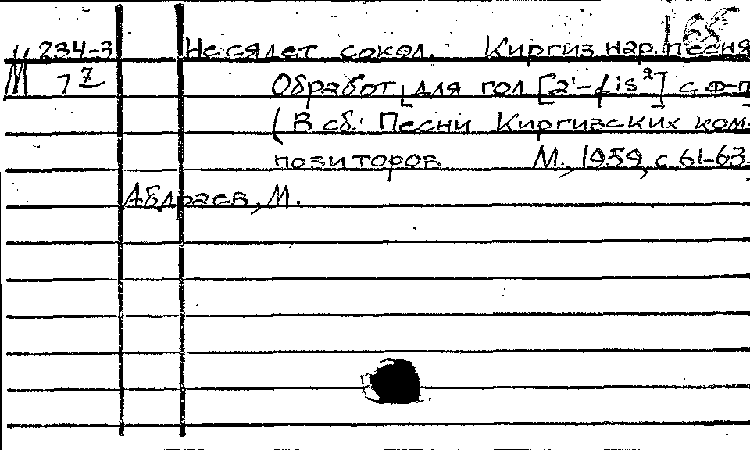 165
М 234-3 Не сядет сокол. Киргиз. нар. песня
7 Обработ. для гол [a'-fis²] с ф-п
(В сб.: Песни Киргизских ком-
позиторов М., 1959, с. 61-63.
Абдраев, М.